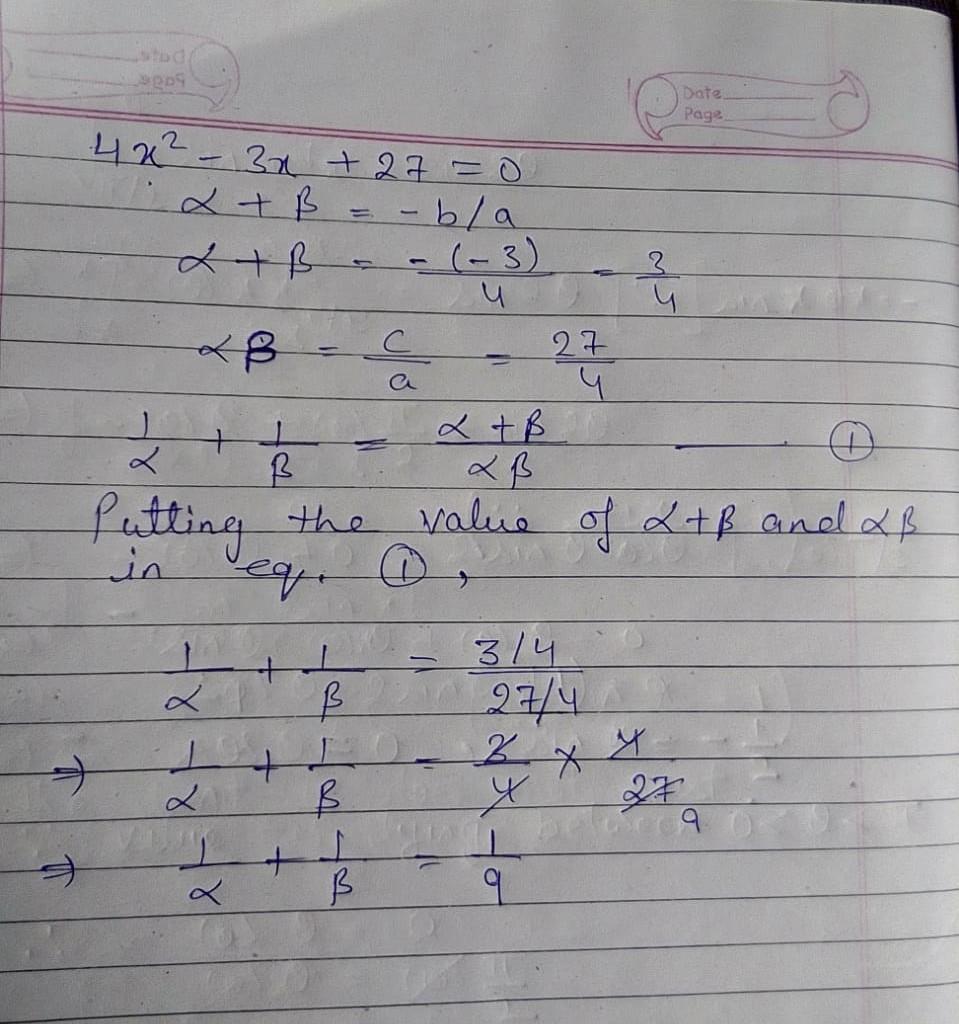 Date
Page
Date
Page
4x² - 3x + 27 = 0
α + β = - b/a
α + β = -(-3)/4 = 3/4
αβ = c/a = 27/4
1/α + 1/β = α + β/αβ —— ①
Putting the value of α+β and αβ
in eq. ①,
1/α + 1/β = 3/4/27/4
⇒ 1/α + 1/β = 3/4 × 4/27 9
⇒ 1/α + 1/β = 1/9